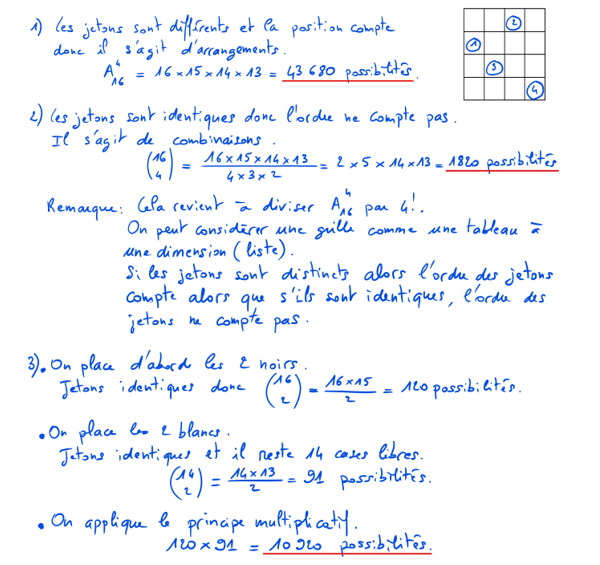 1) Les jetons sont différents et la position compte
donc il s'agit d'arrangements.
A₁₆⁴ = 16 × 15 × 14 × 13 = 43 680 possibilités.
2
1
3
4
2) Les jetons sont identiques donc l'ordre ne compte pas.
Il s'agit de combinaisons.
(16 4) = (16 × 15 × 14 × 13)/(4 × 3 × 2) = 2 × 5 × 14 × 13 = 1820 possibilités
Remarque : Cela revient à diviser A₁₆⁴ par 4!.
On peut considérer une grille comme une tableau à
une dimension (liste).
Si les jetons sont distincts alors l'ordre des jetons
compte alors que s'ils sont identiques, l'ordre des
jetons ne compte pas.
3) • On place d'abord les 2 noirs.
Jetons identiques donc (16 2) = (16 × 15)/2 = 120 possibilités.
• On place les 2 blancs.
Jetons identiques et il reste 14 cases libres.
(14 2) = (14 × 13)/2 = 91 possibilités.
• On applique le principe multiplicatif.
120 × 91 = 10 920 possibilités.